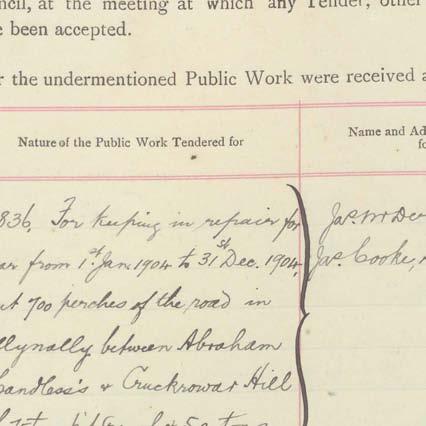 ncil, at the meeting at which any Tender, other
e been accepted.
r the undermentioned Public Work were received a
Nature of the Public Work Tendered for
Name and Ad
fo
836, For keeping in repair for
ar from 1st Jan. 1904 to 31st Dec. 1904,
ut 700 perches of the road in
llynally between Abraham
andless's & Cruckrowar Hill
Jas. McDe
Jas. Cooke,